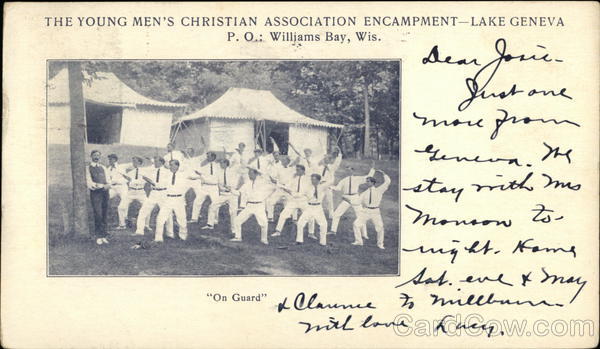 THE YOUNG MEN'S CHRISTIAN ASSOCIATION ENCAMPMENT—LAKE GENEVA
P. O.: Williams Bay, Wis.
Dear Josie-
Just one
more from
Geneva. We
stay with Mrs
Monson to-
night. Home
Sat. eve & May
"On Guard"
& Clarence to Millburn
with love Lucy.
CardCow.com